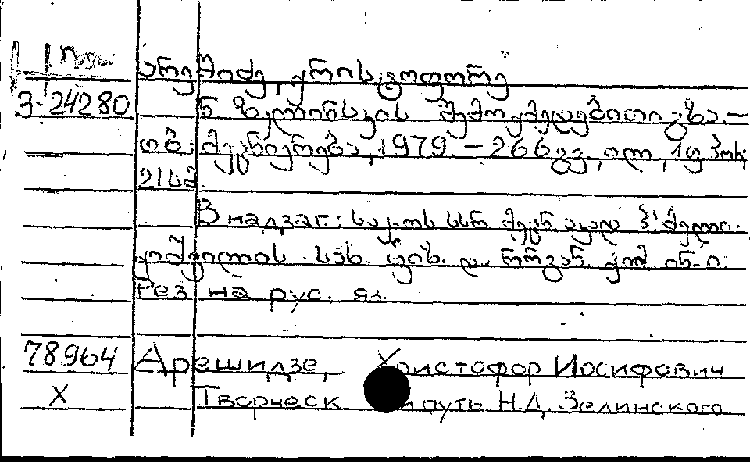 არეშიძე, ქრისტოფორე
3-24280 ნ. ზელინსკის შემოქმედებითი გზა. —
თბ. მეცნიერება, 1979. — 266 გვ. ილ.,
21 სმ
В надзаг.: საქ. სსრ მეცნ. აკად. პ. მელი-
ქიშვილის სახ. ფიზ. და ორგან. ქიმ. ინ-ი.
Рез на рус. яз.
78964 Арешидзе, Христофор Иосифович
X Творческ путь Н.Д. Зелинского